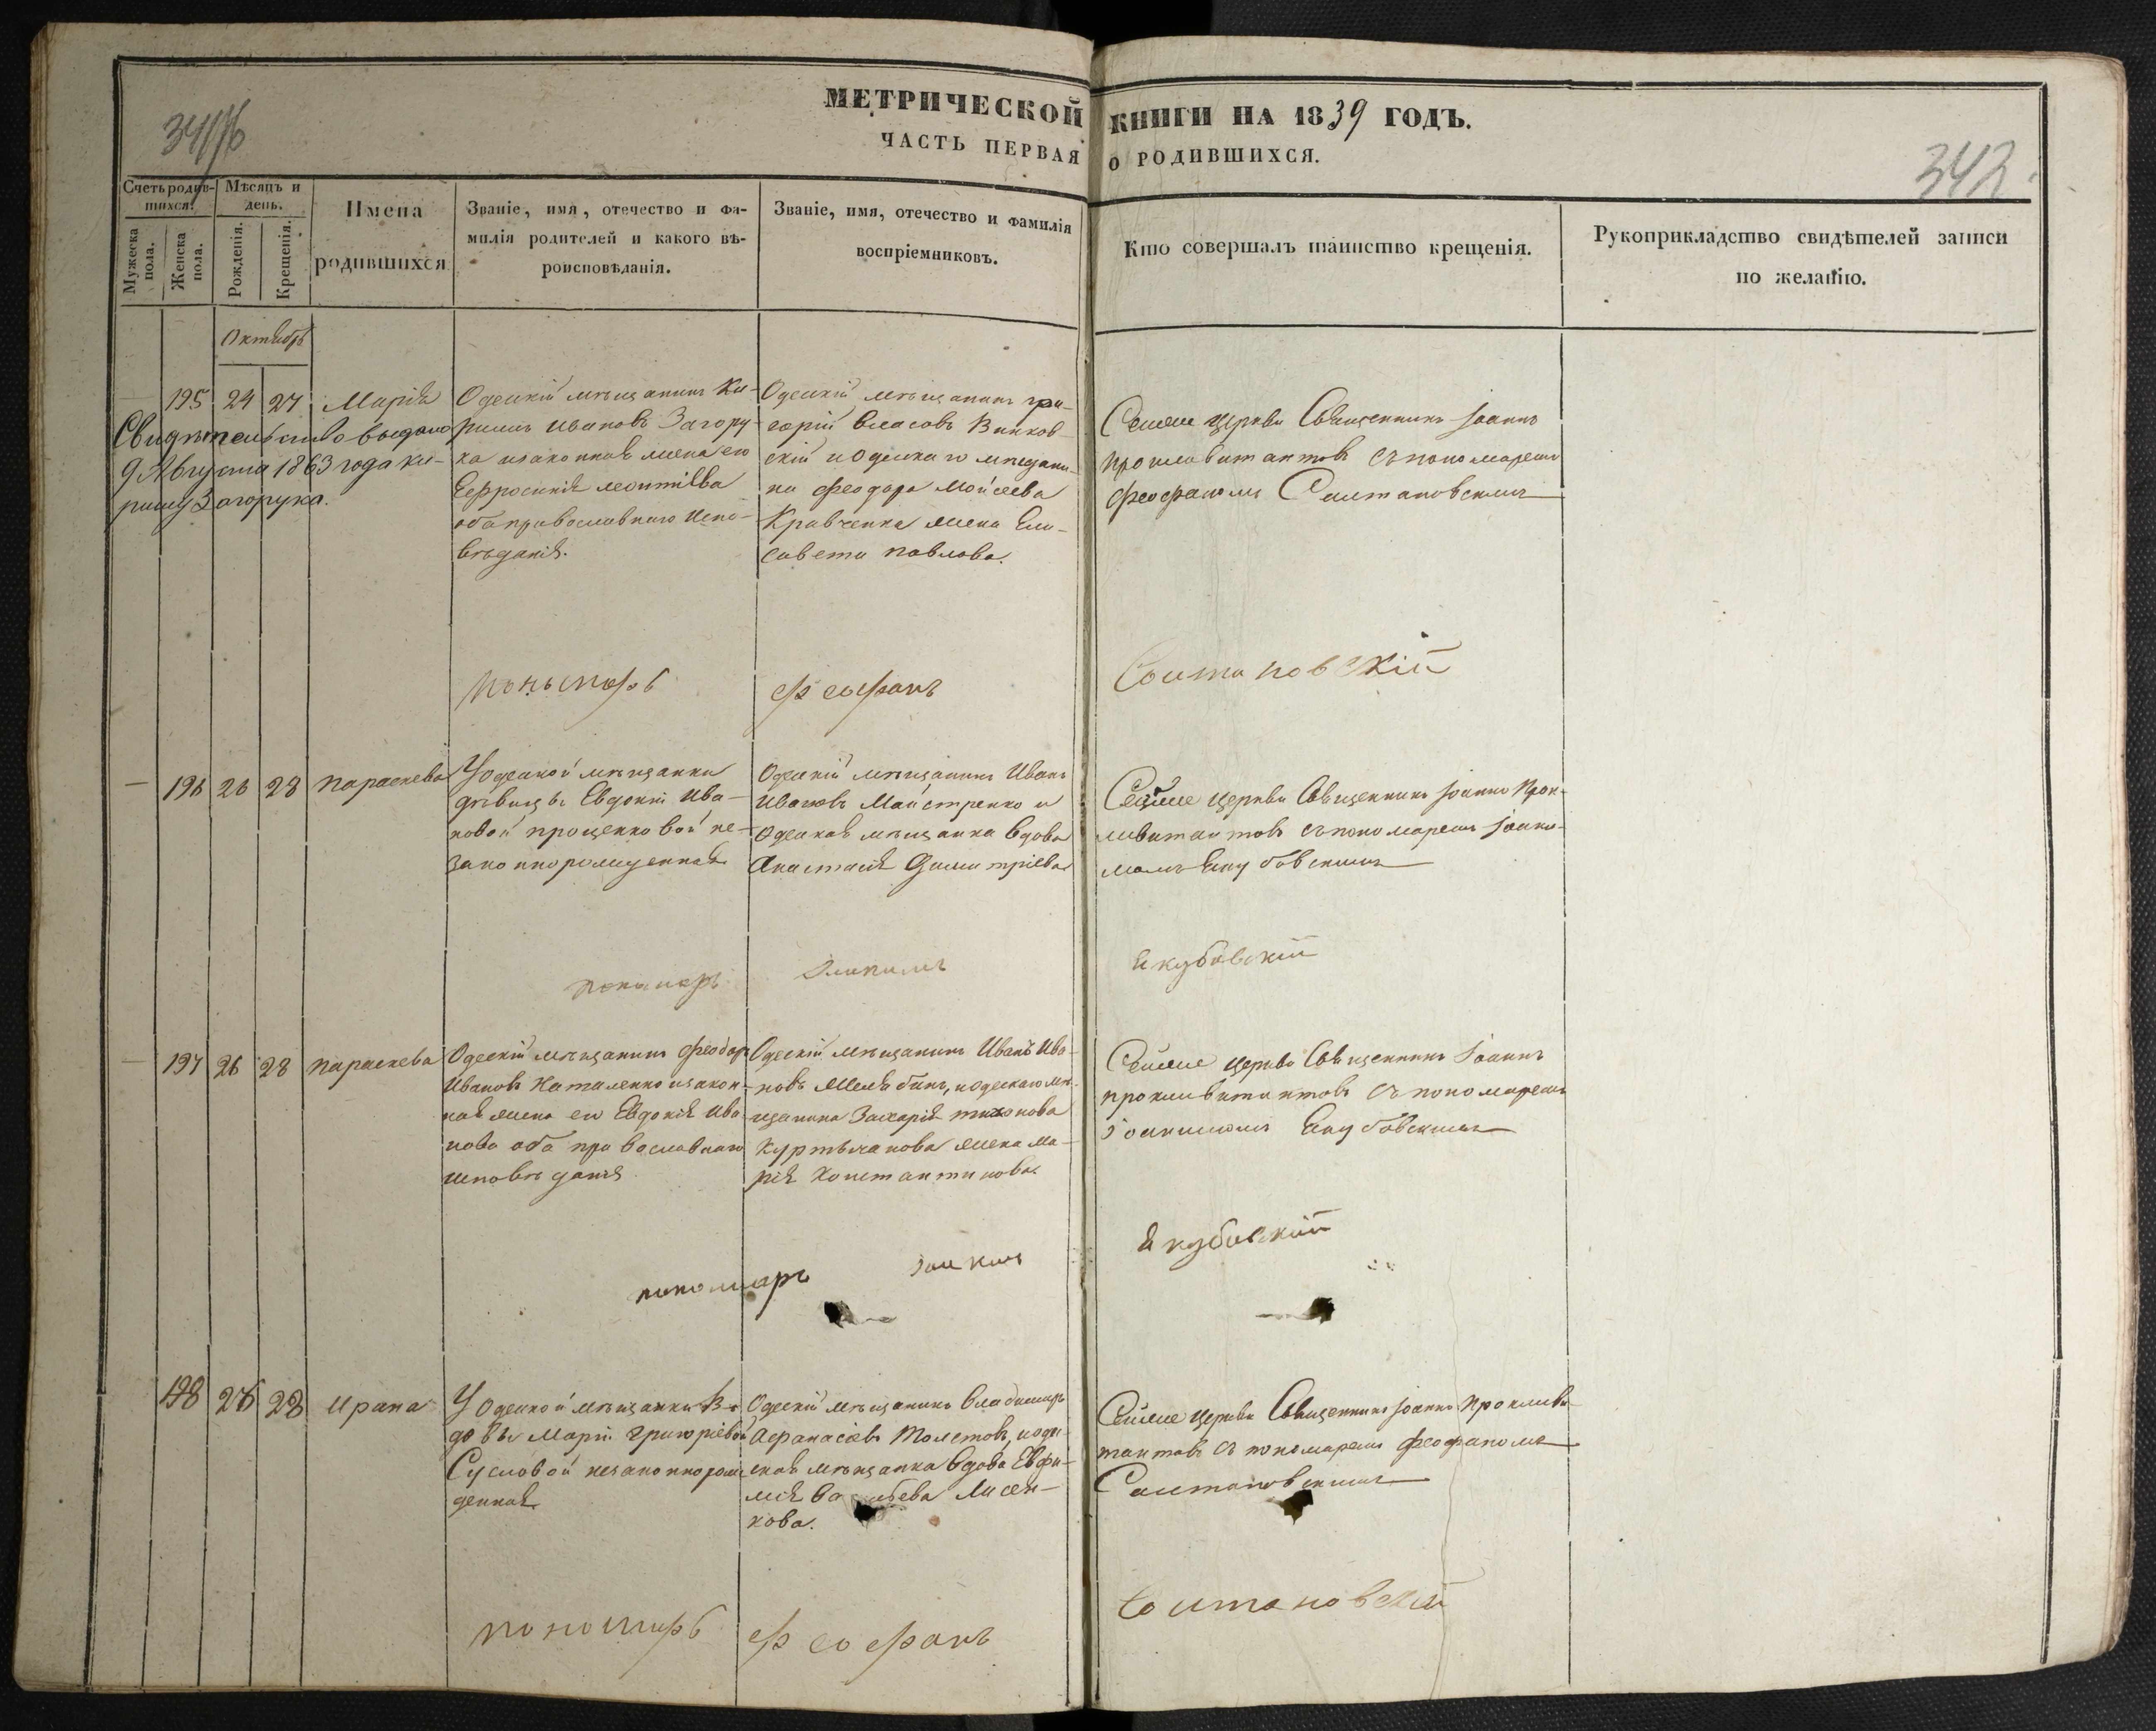 МЕТРИЧЕСКОЙ КНИГИ НА 1839 ГОДЪ.
ЧАСТЬ ПЕРВАЯ О РОДИВШИХСЯ.
342.
Счетъ родив-
шихся.
Мѣсяцъ и
день.
Мужеска
пола.
Женска
пола.
Рожденія.
Крещенія.
Имена
родившихся
Званіе, имя, отечество и фа-
милія родителей и какого вѣ-
роисповѣданія.
Званіе, имя, отечество и фамилія
воспріемниковъ.
Кто совершалъ таинство крещенія.
Рукоприкладство свидѣтелей записи
по желанію.
Октябрь
195 24 27 Марія
Свидѣтельство выдано
9 Августа 1863 года Ки-
рилу Загорука.
Одескій мѣщанинъ Ки-
рилъ Ивановъ Загору-
ка изаконная жена его
Ефросинія Леонтіева
оба православнаго Испо-
вѣданія.
Одескій мѣщанинъ Гри-
горій Власовъ Винков-
скій и одескаго мѣщани-
на Феодора Мойсеева
Кравченка жена Ели-
савета Павлова.
Сеяже Церкви Священникъ Іоаннъ
съ пономаремъ
Феофаномъ Солтановскимъ
пономарь Феофанъ Солтановскій
— 196 26 28 Параскева
У одеской мѣщанки
дѣвицы Евдокіи Ива-
новой Проценковой не-
законнорожденная
Одескій мѣщанинъ Иванъ
Ивановъ Майстренко и
Одеская мѣщанка вдова
Анастасія Димитріева
Сеяже Церкви Священникъ Іоаннъ
съ пономаремъ Іоаки-
момъ Якубовскимъ
пономарь Якубовскій
— 197 26 28 Параскева
Одескій мѣщанинъ Феодоръ
Ивановъ Наталенко изакон-
ная жена его Евдокія Ива-
нова оба православнаго
исповѣданія
Одескій мѣщанинъ Иванъ Ива-
новъ и одескаго мѣ-
щанина Захарія
жена Ма-
рія Константинова
Сеяже Церкви Священникъ Іоаннъ
съ пономаремъ
Іоакимомъ Якубовскимъ
пономарь Іоакимъ Якубовскій
198 26 28 Ирина
У Одеской мѣщанки В-
довы Маріи Григоріевой
Сусловой незаконнорож-
денная
Одескій мѣщанинъ Владимиръ
Афанасіевъ Толстовъ, иоде-
ская мѣщанка вдова Евфи-
мія Лисен-
кова.
Сеяже Церкви Священникъ Іоаннъ
съ пономаремъ Феофаномъ
Солтановскимъ
пономарь Феофанъ Солтановскій